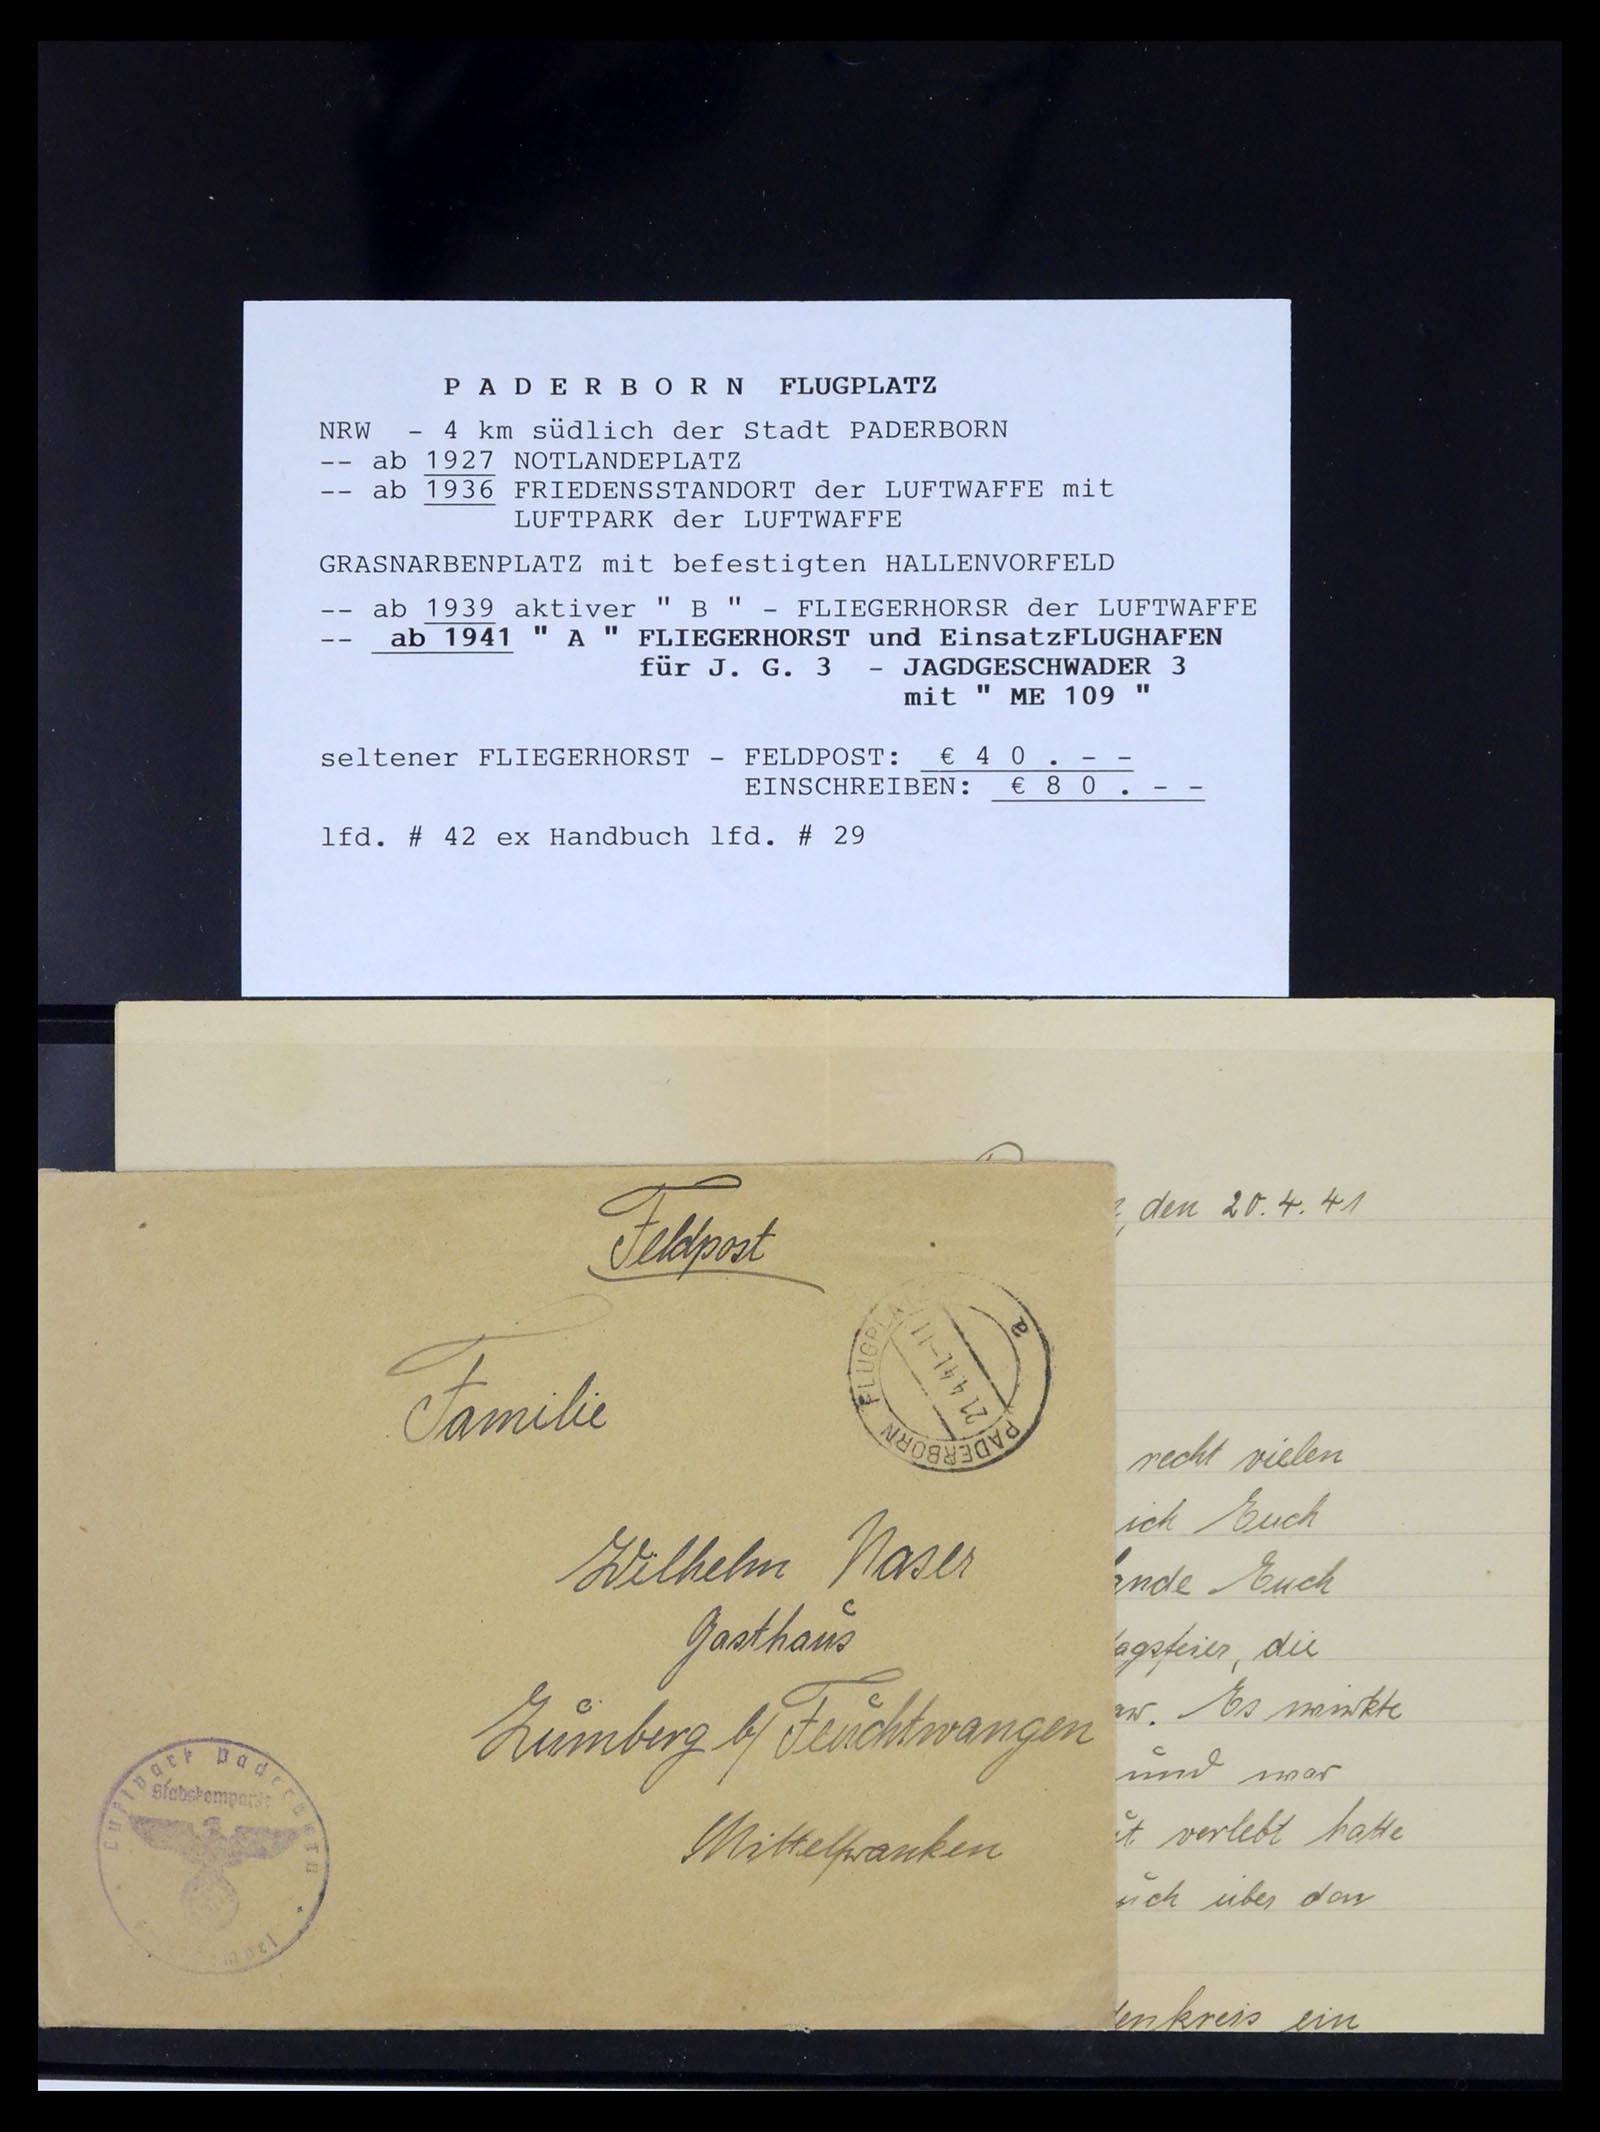 P A D E R B O R N FLUGPLATZ
NRW - 4 km südlich der Stadt PADERBORN
-- ab 1927 NOTLANDEPLATZ
-- ab 1936 FRIEDENSSTANDORT der LUFTWAFFE mit
LUFTPARK der LUFTWAFFE
GRASNARBENPLATZ mit befestigten HALLENVORFELD
-- ab 1939 aktiver " B " - FLIEGERHORSR der LUFTWAFFE
-- ab 1941 " A " FLIEGERHORST und EinsatzFLUGHAFEN
für J. G. 3 - JAGDGESCHWADER 3
mit " ME 109 "
seltener FLIEGERHORST - FELDPOST: € 4 0 . - -
EINSCHREIBEN: € 8 0 . - -
lfd. # 42 ex Handbuch lfd. # 29
den 20.4.41
recht vielen
ich Euch
Euch
agsfeier, die
Es winkte
und war
verlebt hatte
über den
enkreis ein
Feldpost
PADERBORN FLUGPLA
21.4.41-11
a
Familie
Wilhelm Naser
Gasthaus
Zumberg b/ Feuchtwangen
Mittelfranken
Luftpark Paderborn
Stabskompanie